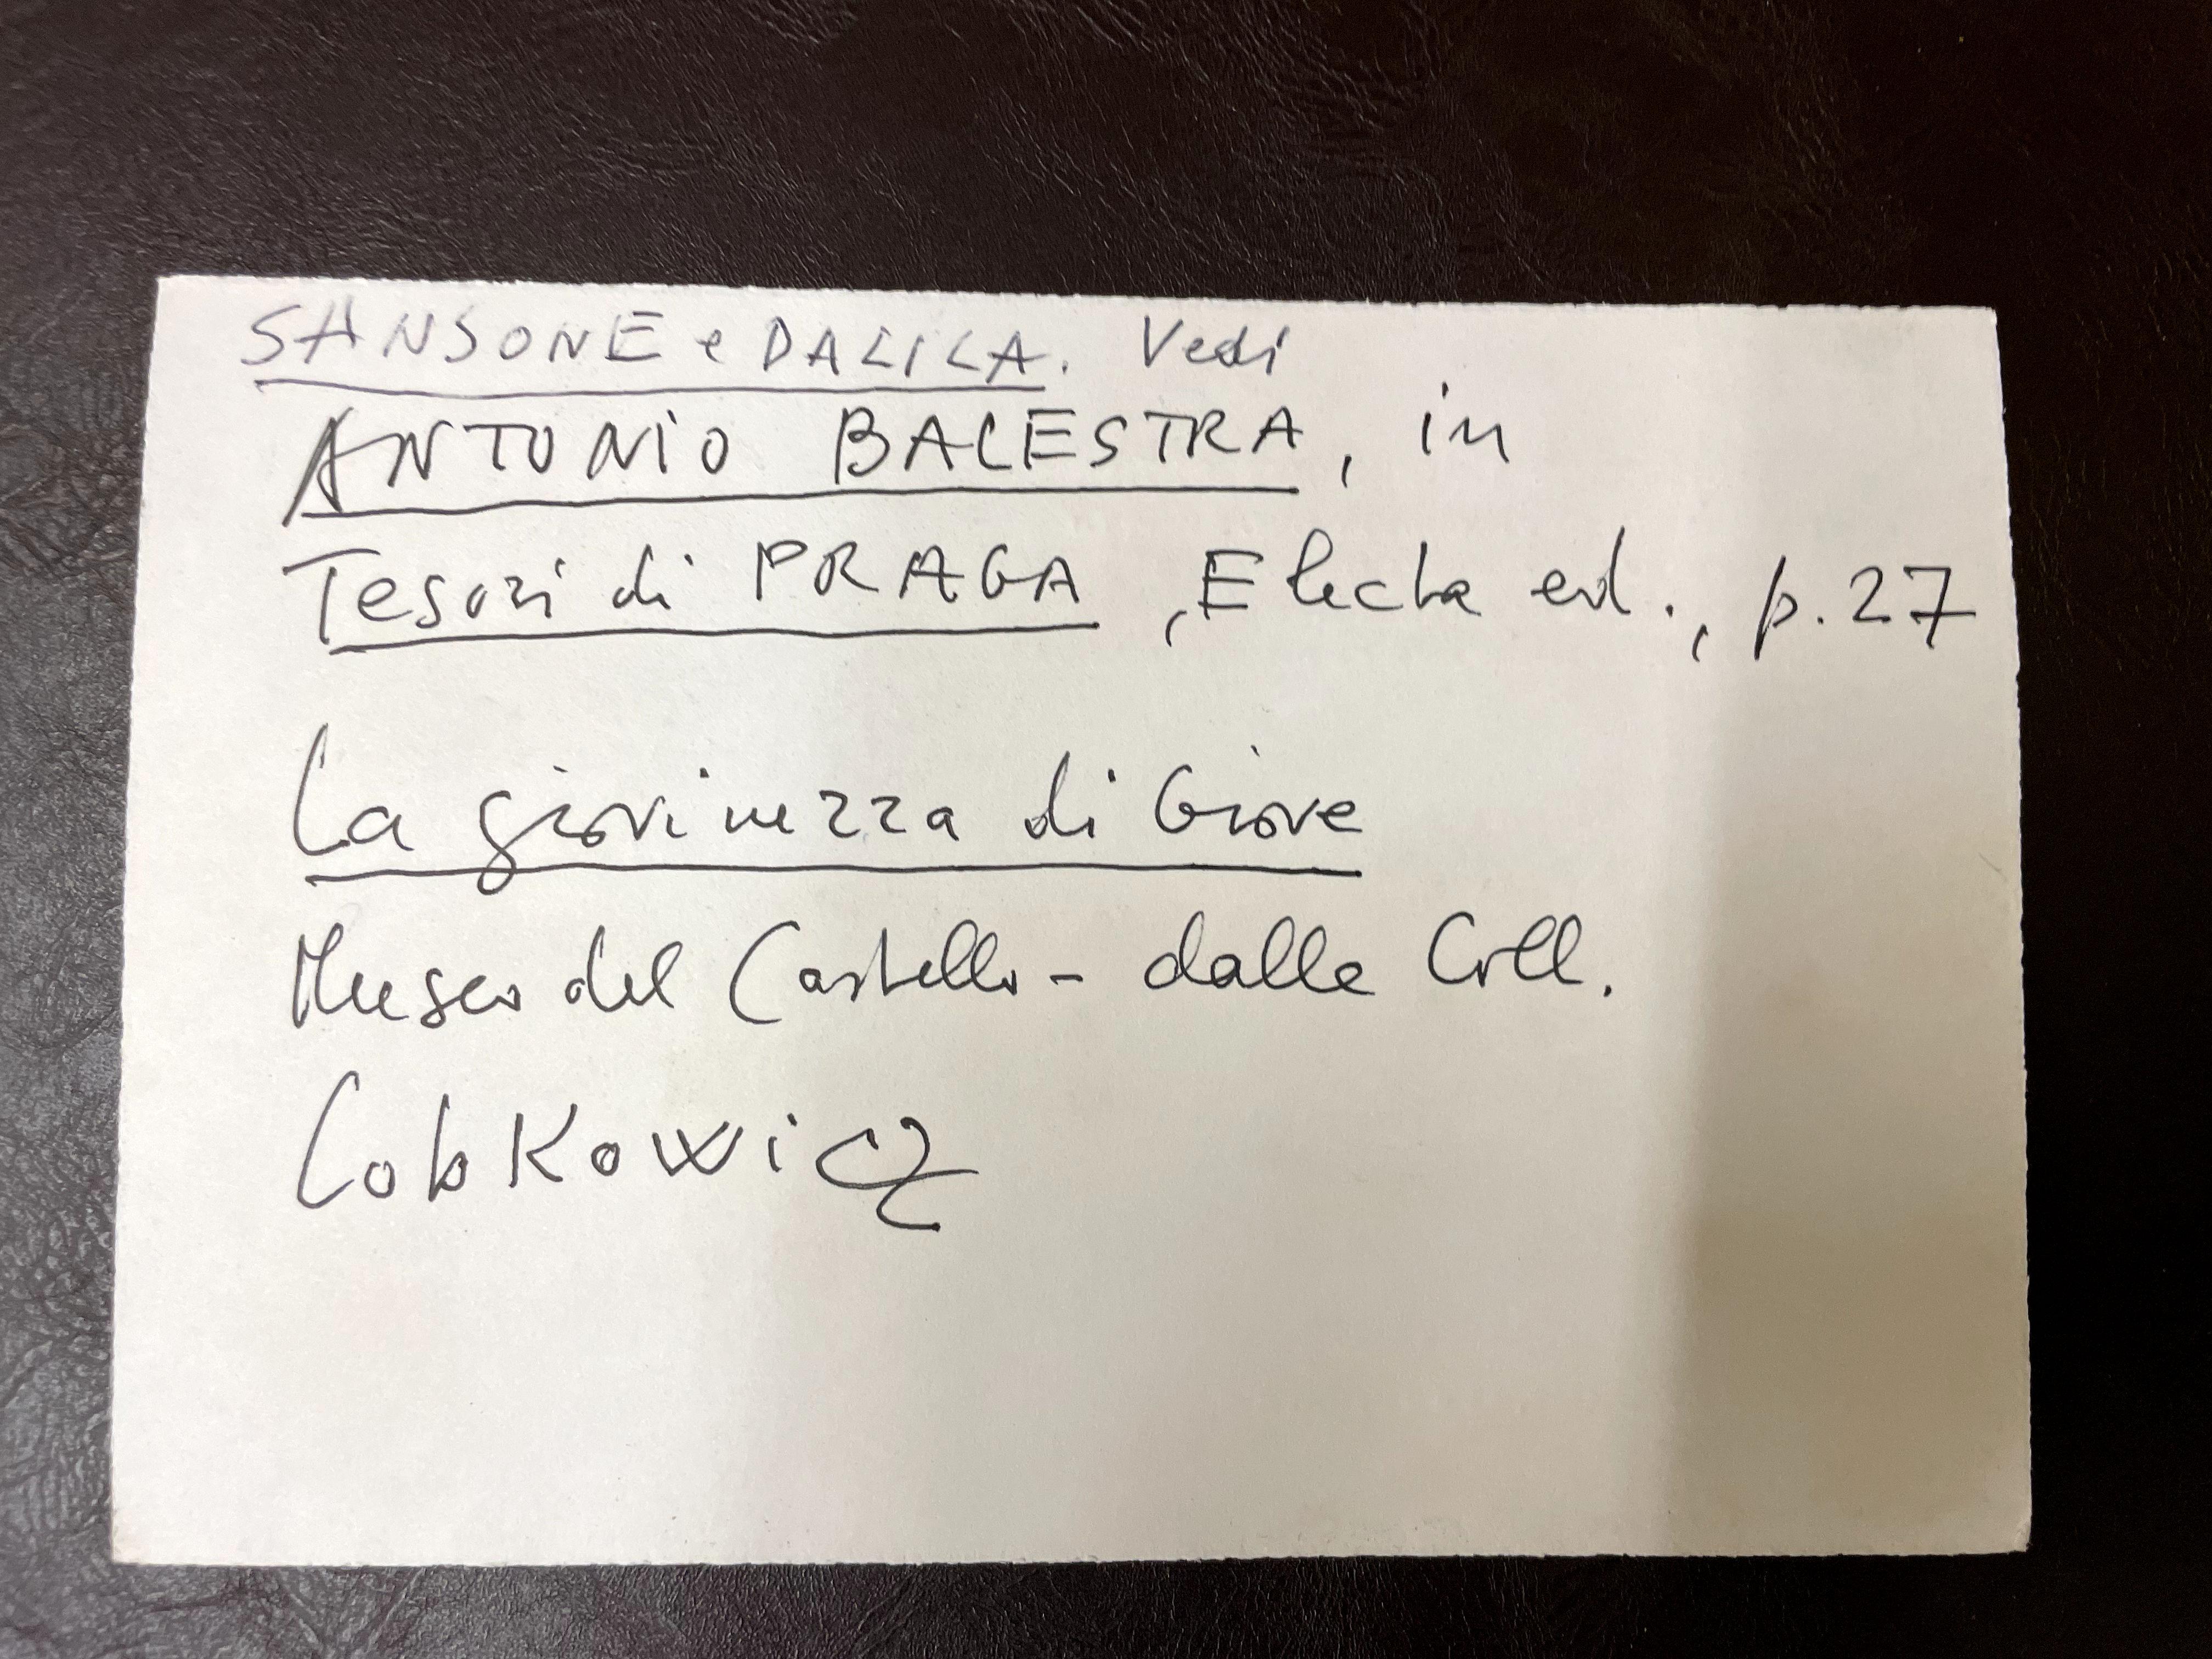 SANSONE e DALILA. Vedi
ANTONIO BALESTRA, in
Tesori di PRAGA, Electa ed., p. 27
La giovinezza di Giove
Museo del Castello - dalle Coll.
Lobkowicz